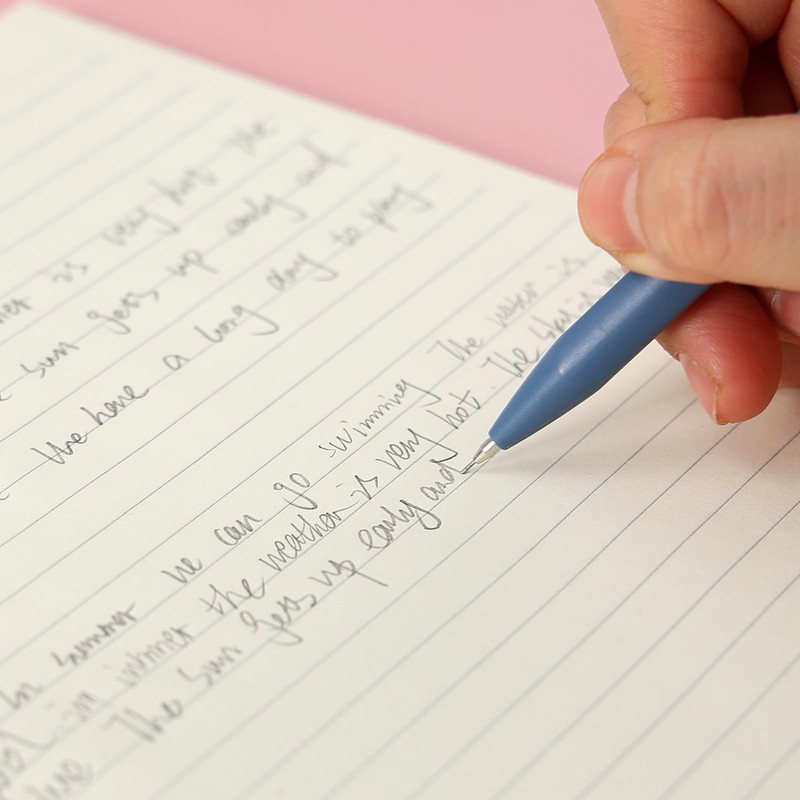 is very hot the
sun gets up early and
We have a long day to play
In summer we can go swimming The water is
in summer the weather is very hot. The
blue. The sun gets up early and